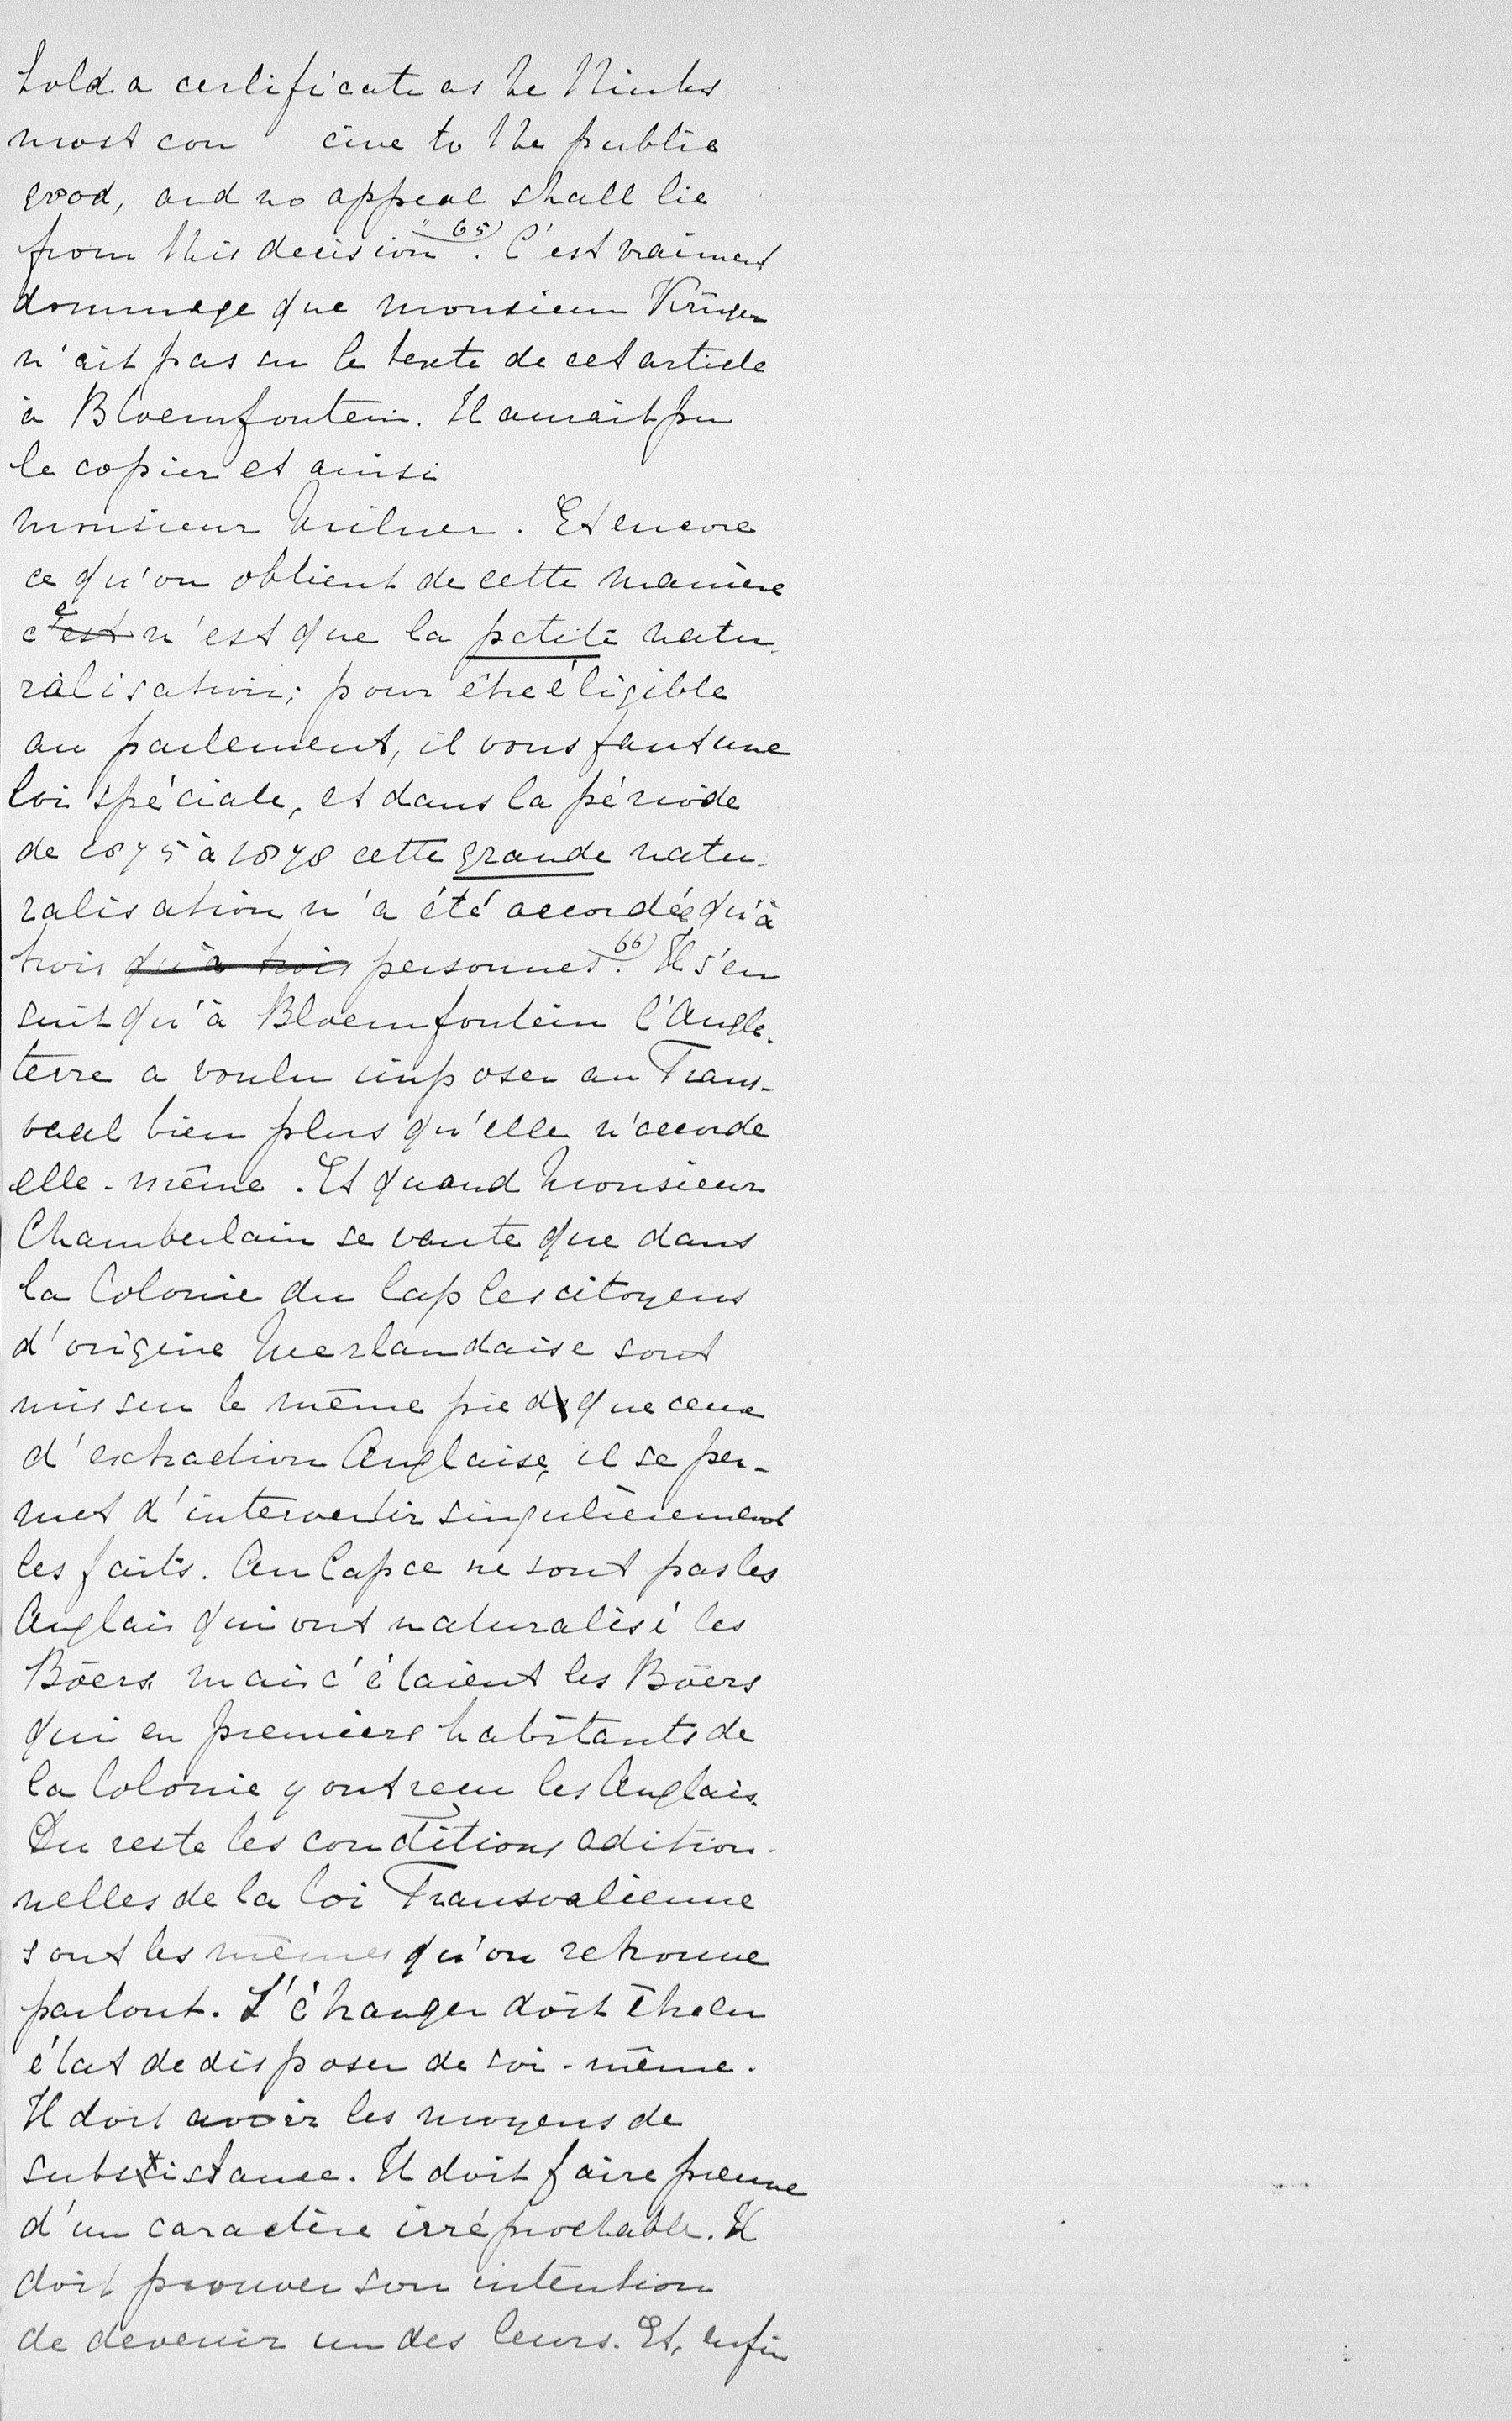 hold a certificate as he thinks
most con cive to the public
good, and no appeal shall lie
from this decision" 65). C'est vraiment
dommage que monsieur Krüger
n'ait pas eu le texte de cet article
à Bloemfontein. Il aurait pu
le copier et ainsi
monsieur Milner. Et encore
ce qu'on obtient de cette manière
ce n'est que la petite natu-
ralisation; pour être éligible
au parlement, il vous faut une
loi spéciale, et dans la période
de 1875 à 1878 cette grande natu-
ralisation n'a été accordée qu'à
trois qu'à trois personnes 66). Il s'en
suit qu'à Bloemfontein l'Angle-
terre a voulu imposer au Trans-
vaal bien plus qu'elle n'accorde
elle-même. Et quand Monsieur
Chamberlain se vante que dans
la Colonie du Cap les citoyens
d'origine Neerlandaise sont
mis sur le même pied que ceux
d'extraction Anglaise, il se per-
met d'intervertir singulièrement
les faits. Au Cap ce ne sont pas les
Anglais qui ont naturalisé les
Bôers mais c'étaient les Bôers
qui en premiers habitants de
la Colonie y ont reçu les Anglais.
Du reste les conditions adition-
nelles de la loi Transvalienne
sont les mêmes qu'on retrouve
partout. L'étranger doit être en
état de disposer de soi-même.
Il doit avoir les moyens de
subsistance. Il doit faire preuve
d'un caractère irréprochable. Il
doit prouver son intention
de devenir un des leurs. Et, enfin